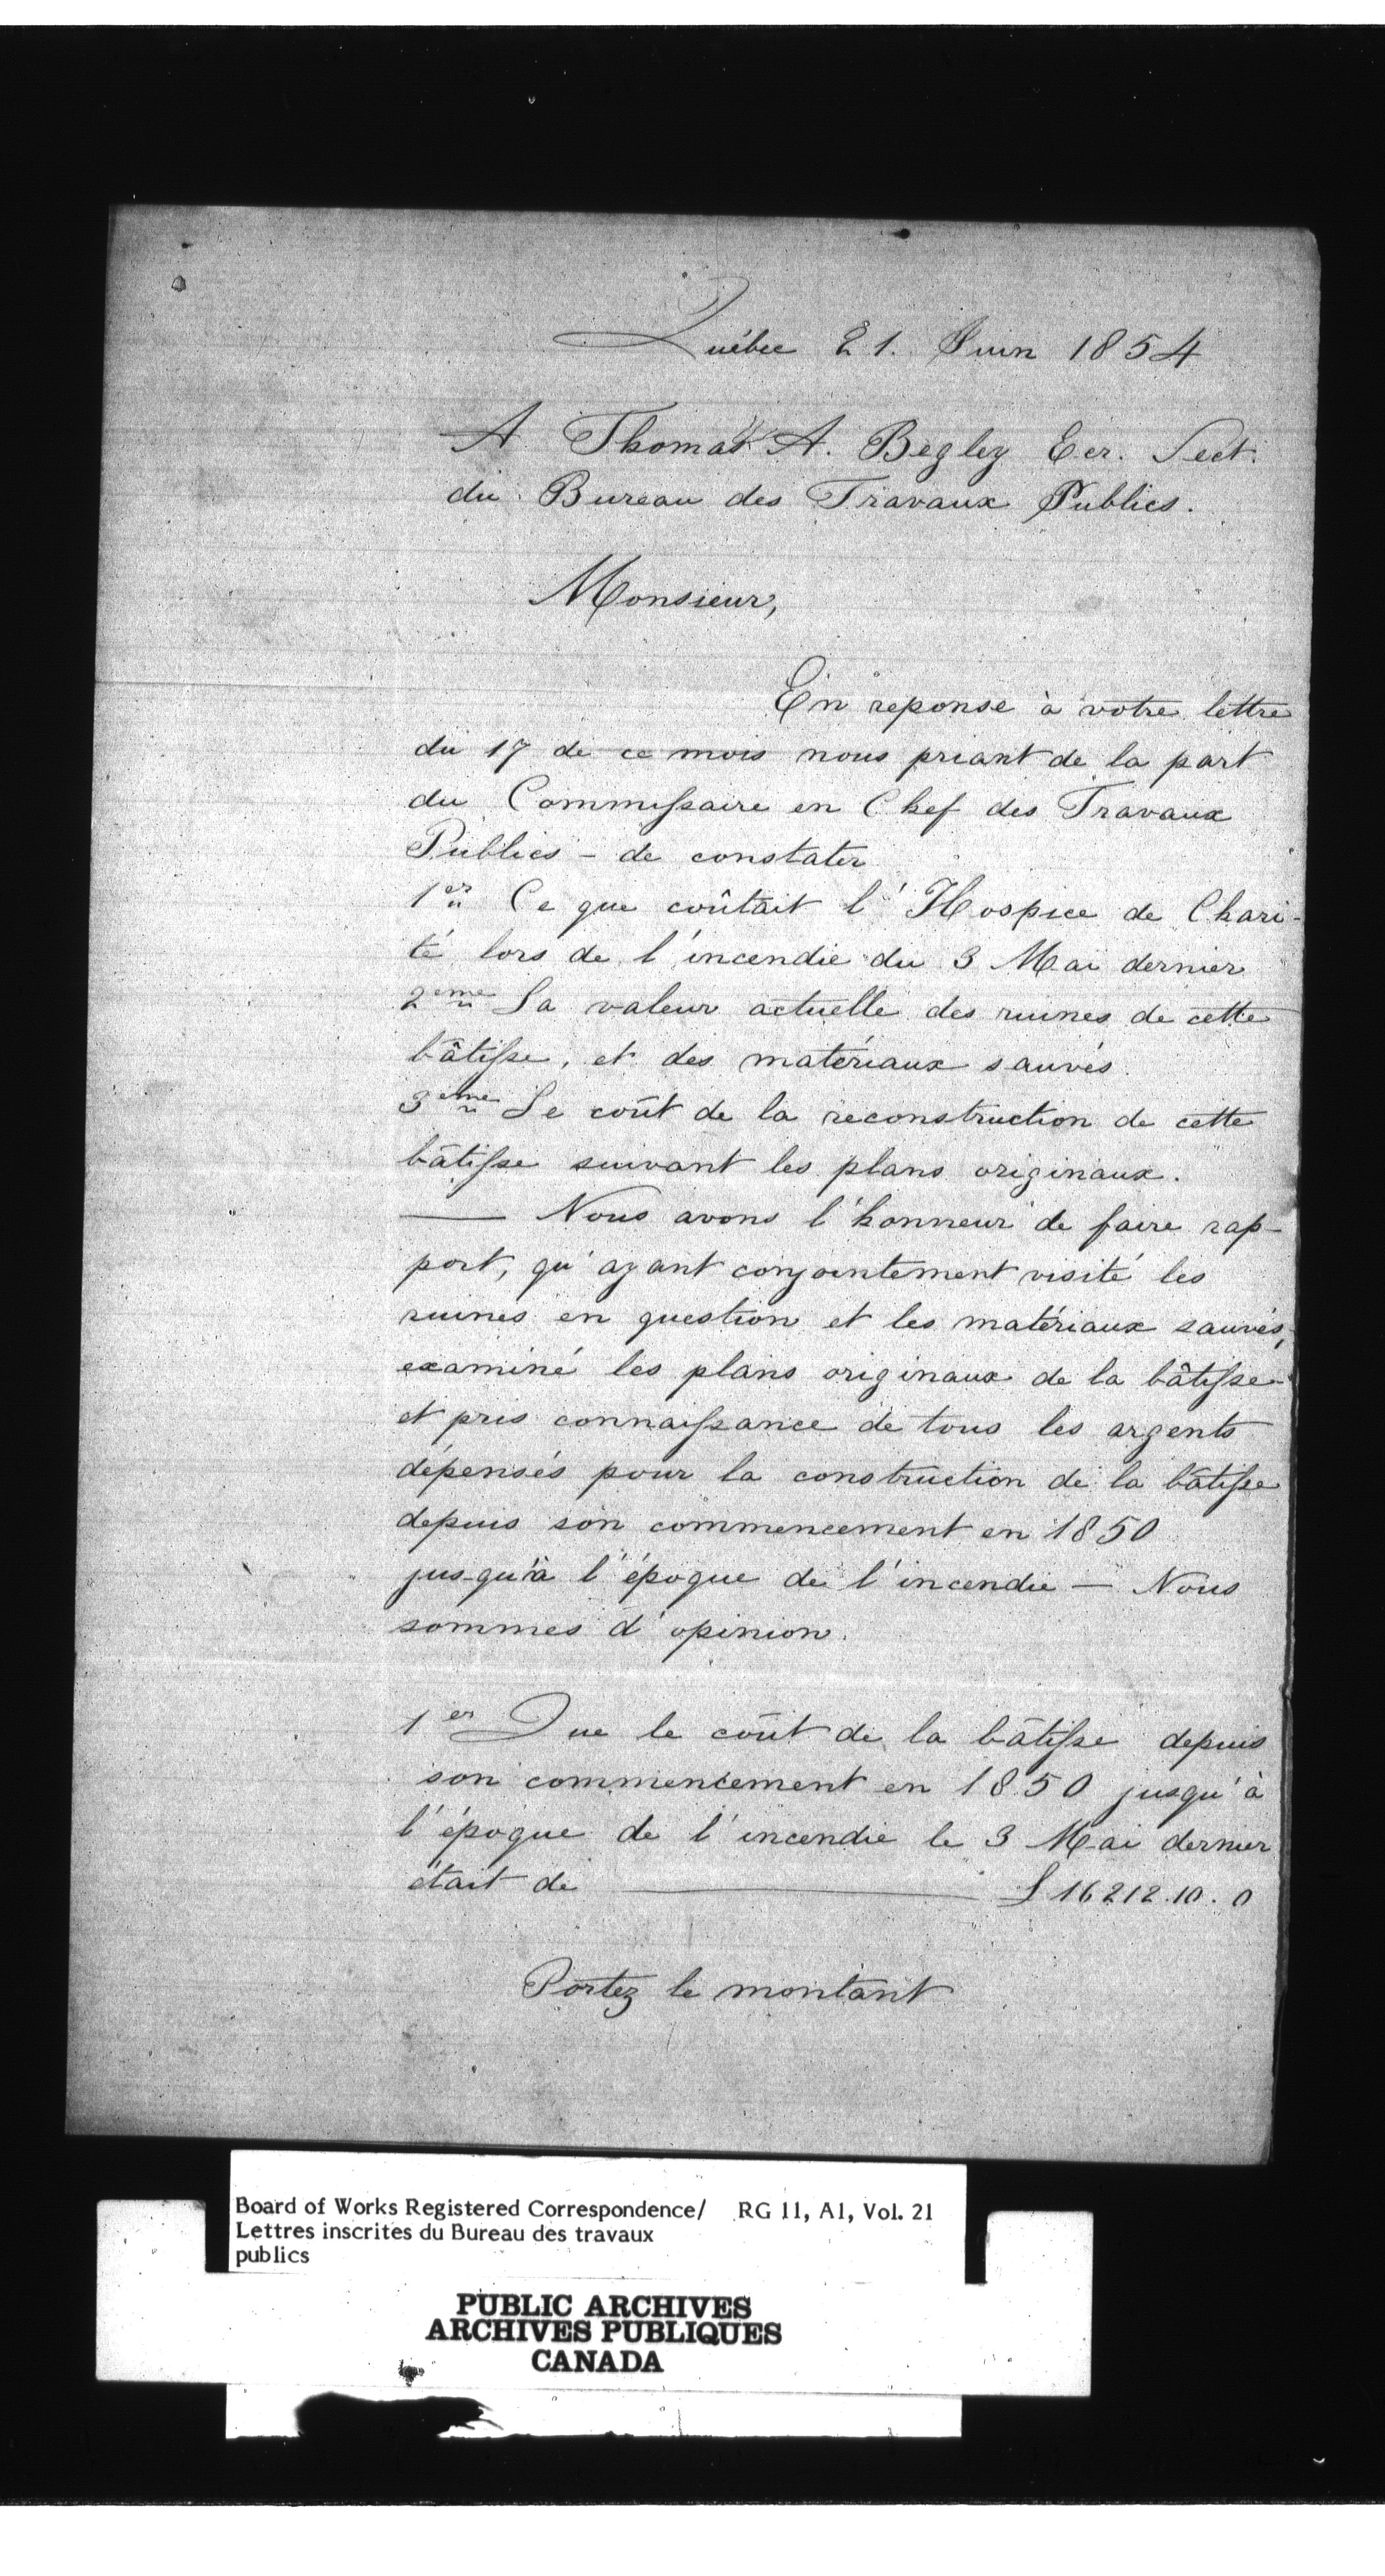 Québec 21. Juin 1854
A Thomas A. Begley Ecr. Sect.
du Bureau des Travaux Publics.
Monsieur,
En reponse à votre lettre
du 17 de ce mois nous priant de la part
du Commissaire en Chef des Travaux
Publics - de constater
1er Ce que coûtait l'Hospice de Chari-
té lors de l'incendie du 3 Mai dernier
2eme La valeur actuelle des ruines de cette
bâtisse, et des matériaux sauvés.
3eme Le coût de la reconstruction de cette
bâtisse suivant les plans originaux.
— Nous avons l'honneur de faire rap-
port, qu'ayant conjointement visité les
ruines en question et les matériaux sauvés,
examiné les plans originaux de la bâtisse
et pris connaissance de tous les argents
dépensés pour la construction de la bâtisse
depuis son commencement en 1850
jusqu'à l'époque de l'incendie — Nous
sommes d'opinion.
1er Que le coût de la bâtisse depuis
son commencement en 1850 jusqu'à
l'époque de l'incendie le 3 Mai dernier
était de — £ 16212.10.0
Portez le montant
Board of Works Registered Correspondence/ RG 11, A1, Vol. 21
Lettres inscrites du Bureau des travaux
publics
PUBLIC ARCHIVES
ARCHIVES PUBLIQUES
CANADA